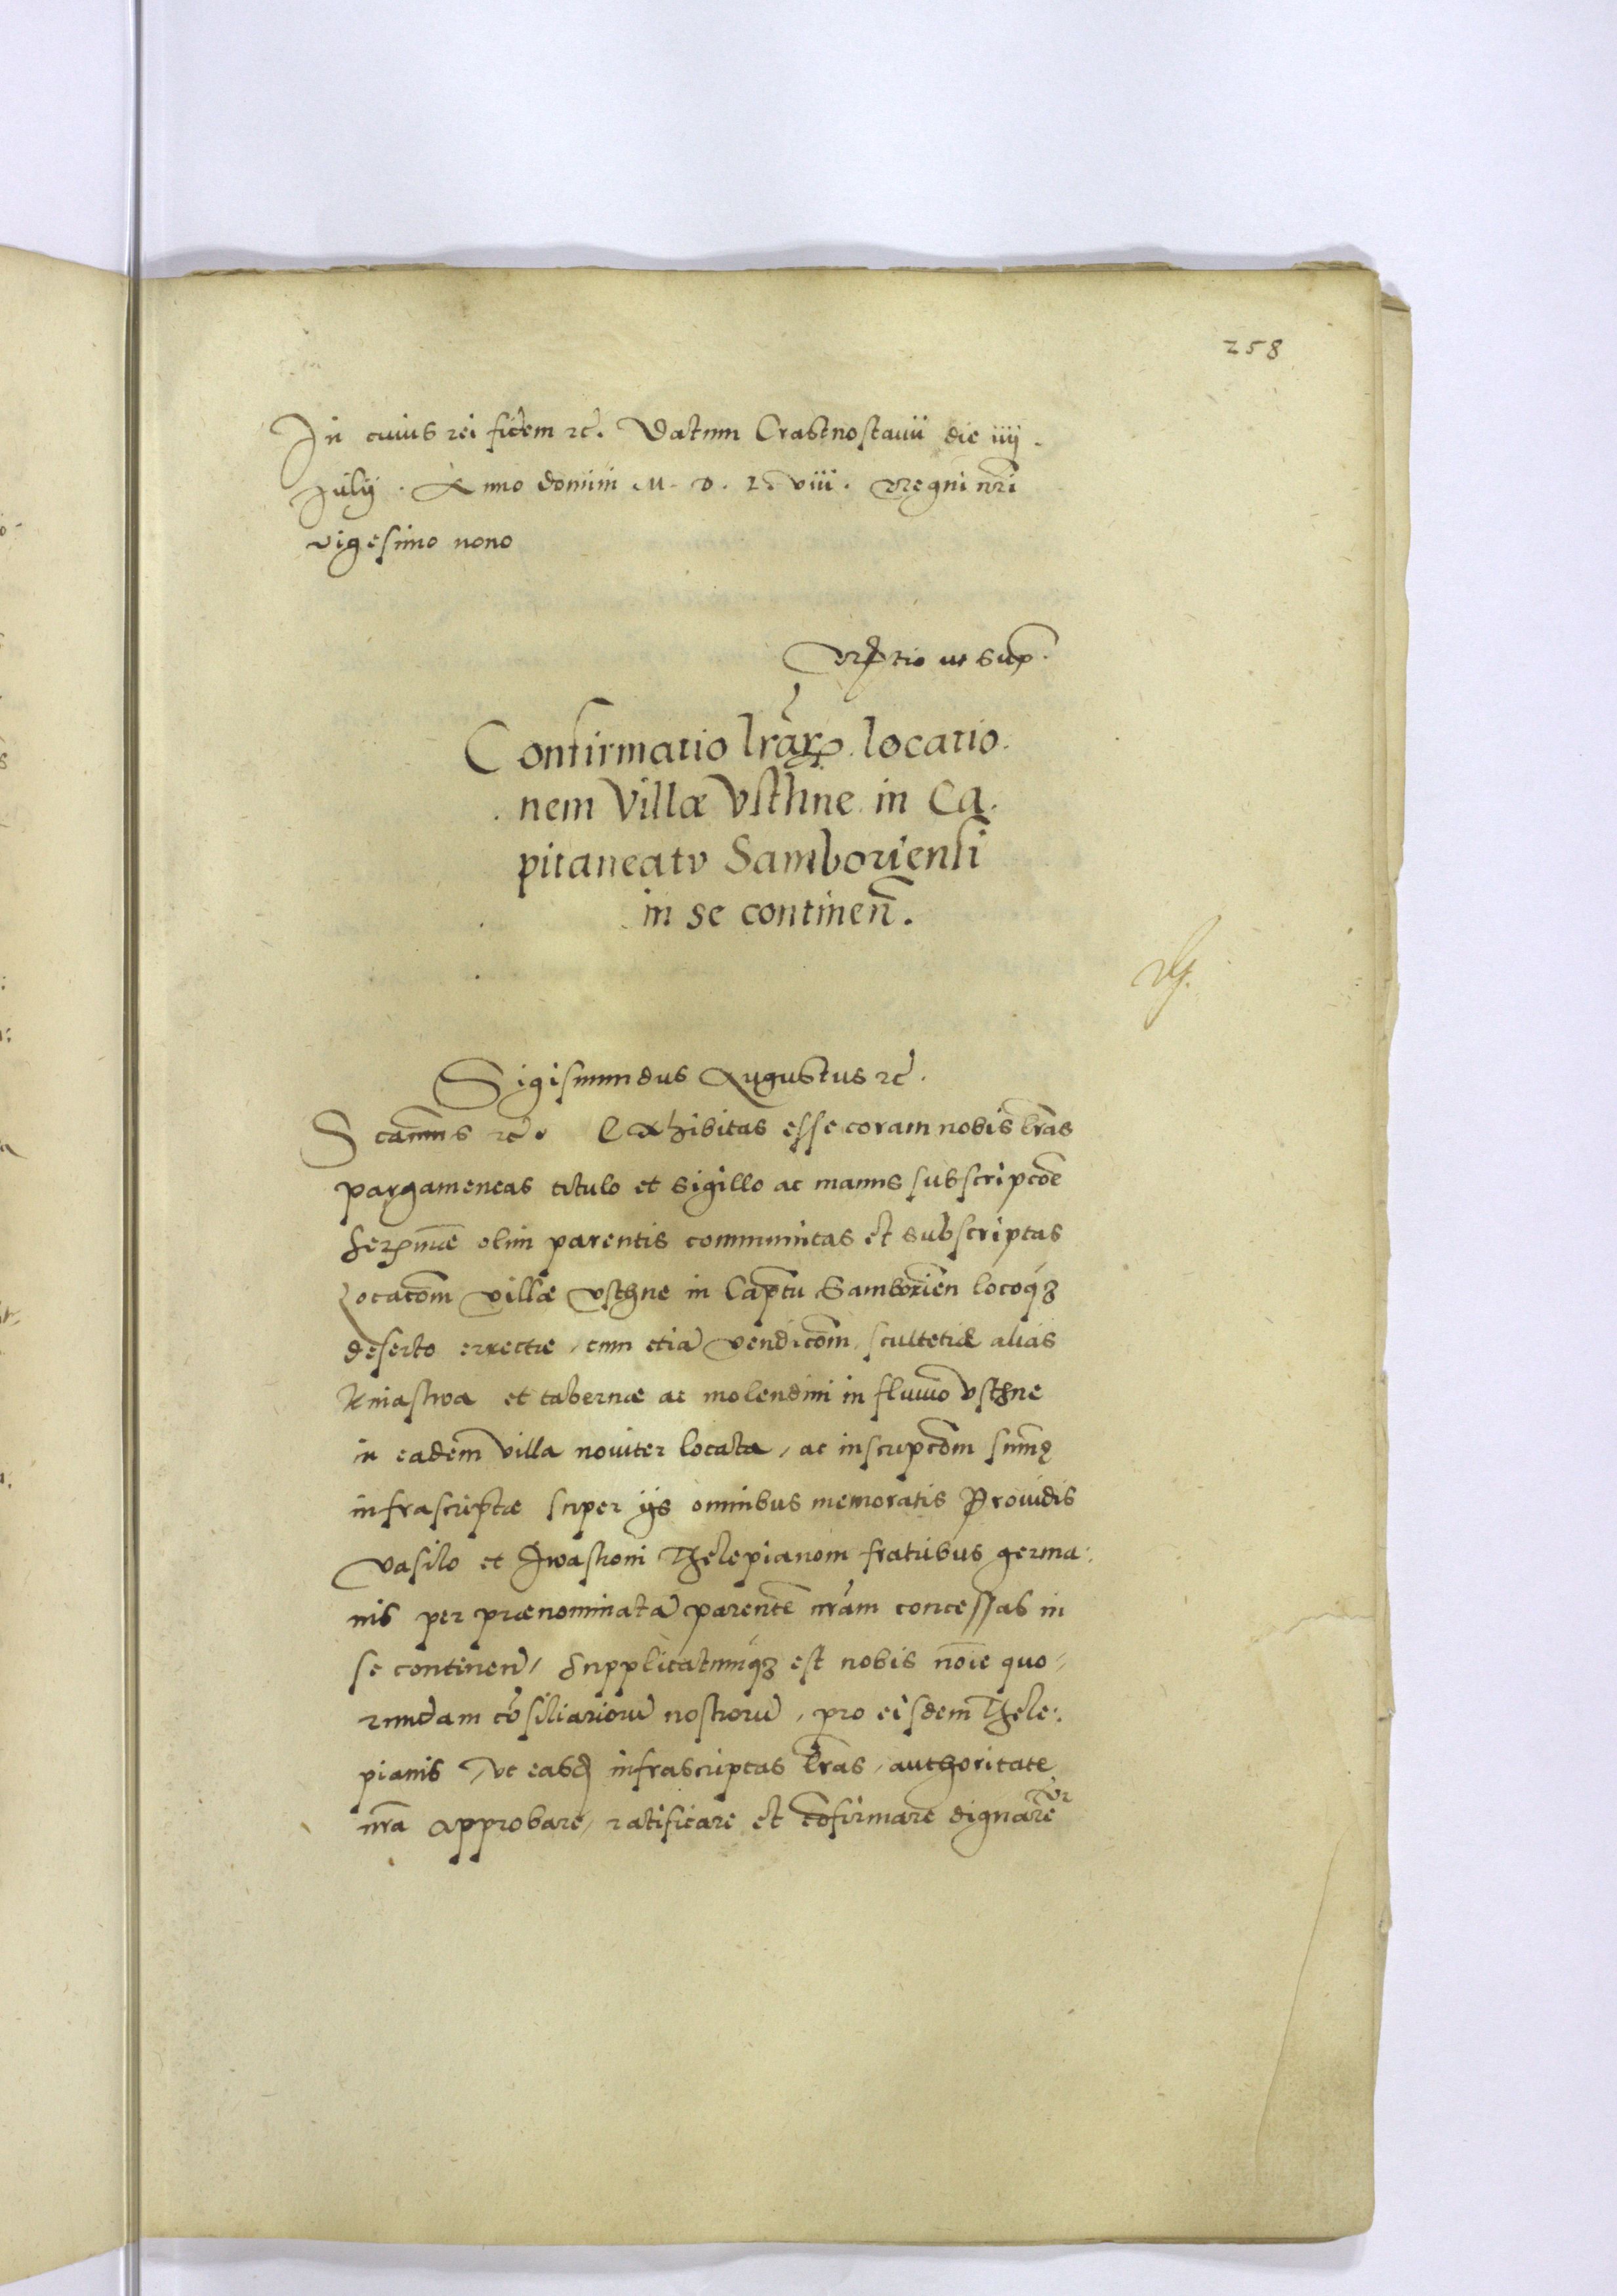 258
In cuius rei fidem rc̃. Datum Crastnostauii die iiij.
Julij. Anno domini M. D. L. viii. Regni nr̃i
vigesimo nono
ut sup̃.
Confirmatio lr̃aꝝ locatio.
nem Villæ Vsthne in Ca.
pitaneatv Samboriensi
in se continen̄.
Sigismundus Augustus rc̃.
Scam̃us rc̃. Exhibitas esse coram nobis lr̃as
pargameneas titulo et sigillo ac manus subscripcõe
olim parentis communitas et subscriptas
Locacõm villæ vsthne in Cap̃tu Samborień locoqꝫ
deserto errectæ, cum etiã vendicõm, scultetiæ alias
Kniastwa et tabernæ ac molendini in fluuio vsthne
in eadem villa nouiter locata, ac inscripcõm sum̃ę
infrascriptæ super ijs omnibus memoratis Prouidis
Vasilo et Iwastioni Thelepianom fratribus germa:
nis per prænominatã parentẽ nr̃am concessas in
se continen̄, Supplicatumqꝫ est nobis nõie quo-
rundam cõsiliariorũ nostrorũ, pro eisdem Thele:
pianis, vt easd̃ infrascriptas lr̃as, authoritate
nr̃a approbare, ratificare et cõfirmare dignarẽ^ur